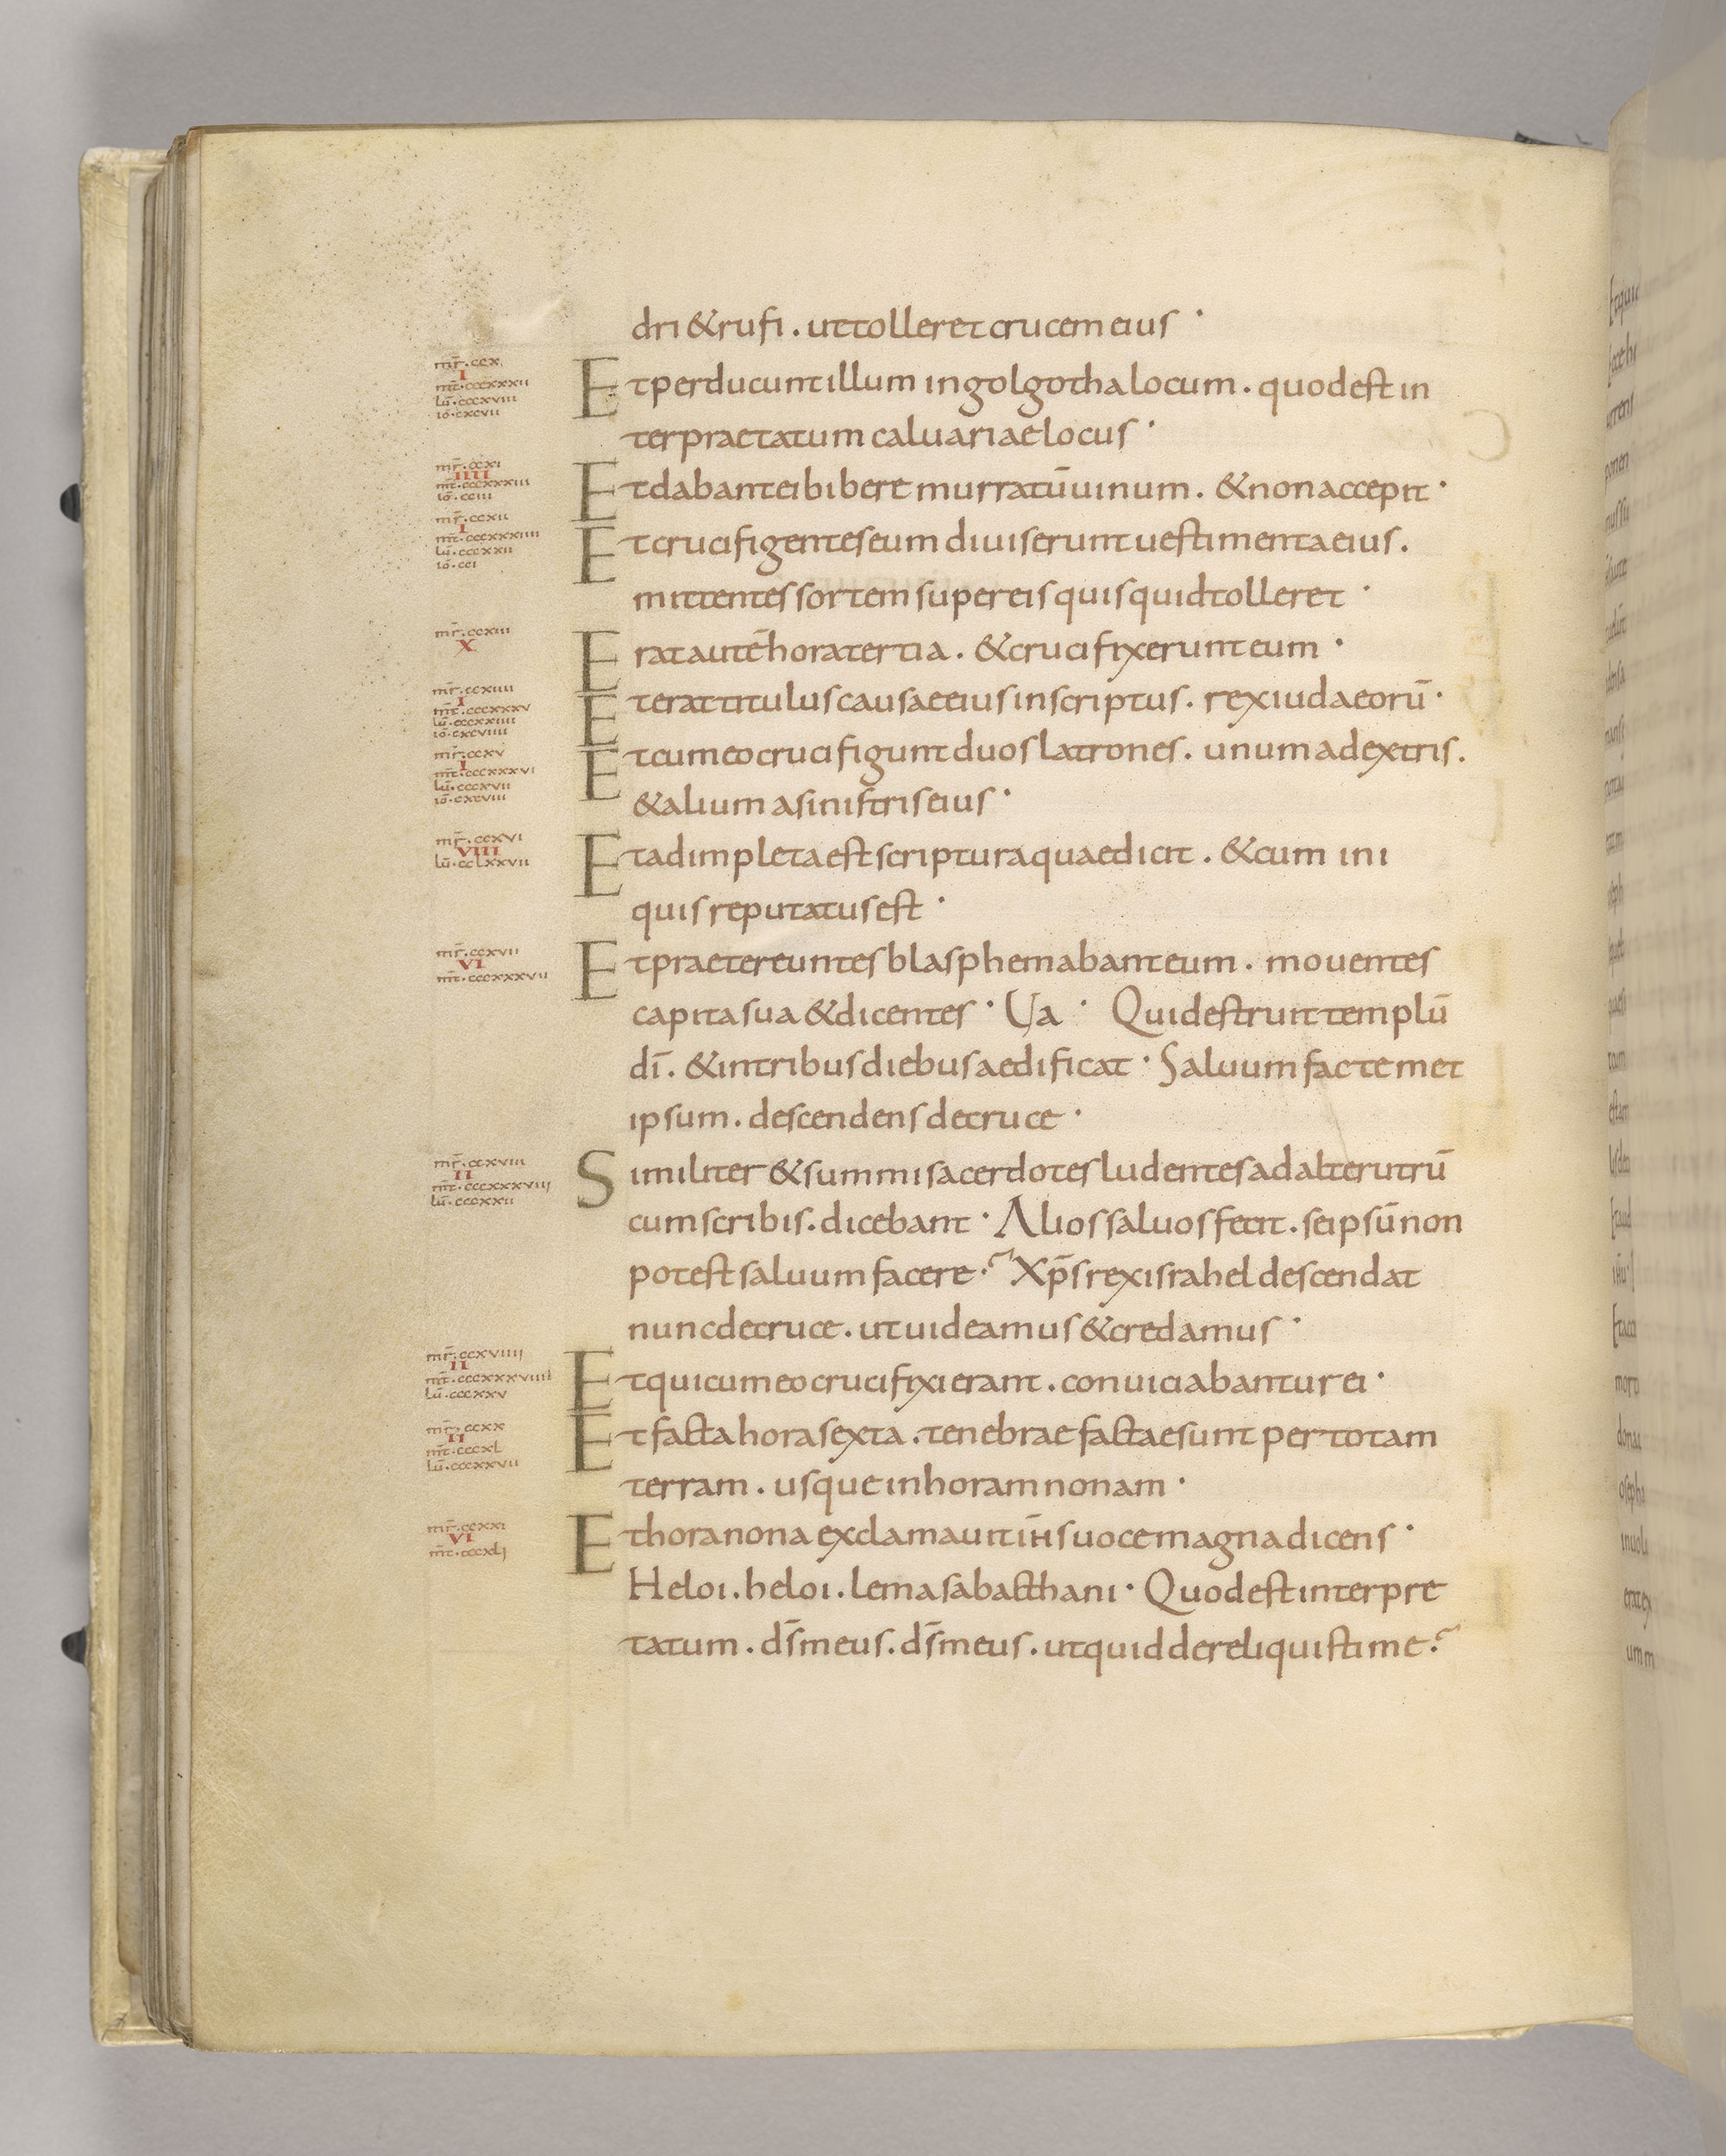 dri & rufi . ut tolleret crucem eius ·
mr̄ · ccx
I
mt̄ · cccxxxii
lū · cccxviii
iō · cxcvii
Et perducunt illum in golgotha locum . quod est in
terpraetatum caluariae locus ·
mr̄ · ccxi
IIII
mt̄ · cccxxxiii
iō · cciii
Et dabant ei bibere murratū uinum . & non accepit ·
mr̄ · ccxii
I
mt̄ · cccxxxiiii
lū · cccxxii
iō · cci
Et crucifigentes eum diuiserunt uestimenta eius .
mittentes sortem super eis quis quid tolleret ·
mr̄ · ccxiii
X
Erat autē hora tertia . & crucifixerunt eum ·
mr̄ · ccxiiii
I
mt̄ · cccxxxv
lū · cccxxiiii
iō · cxcviiii
Et erat titulus causae eius inscriptus . rex iudaeorū ·
mr̄ · ccxv
I
mt̄ · cccxxxvi
lū · cccxvii
iō · cxcviii
Et cum eo crucifigunt duos latrones . unum a dextris .
& alium a sinistris eius ·
mr̄ · ccxvi
VIII
lū · cclxxvii
Et adimpleta est scriptura quae dicit . & cum ini
quis reputatus est ·
mr̄ · ccxvii
VI
mt̄ · cccxxxvii
Et praetereuntes blasphemabant eum . mouentes
capita sua & dicentes · Ua · Qui destruit templū
dī . & in tribus diebus aedificat · Saluum fac temet
ipsum . descendens de cruce ·
mr̄ · ccxviii
II
mt̄ · cccxxxviii
lū · cccxxii
Similiter & summi sacerdotes ludentes ad alterutrū
cum scribis . dicebant · Alios saluos fecit . se ipsū non
potest saluum facere ·? Xp̄s rex israhel descendat
nunc de cruce . ut uideamus & credamus ·
mr̄ · ccxviiii
II
mt̄ · cccxxxviiii
lū · cccxxv
Et qui cum eo crucifixi erant . conuiciabantur ei ·
mr̄ · ccxx
II
mt̄ · cccxl
lū · cccxxvii
Et facta hora sexta . tenebrae factae sunt per totam
terram . usque in horam nonam ·
mr̄ · ccxxi
VI
mt̄ · cccxli
Et hora nona exclamauit ih̄s uoce magna dicens ·
Heloi . heloi . lema sabacthani · Quod est interpre
tatum . ds̄ meus . ds̄ meus . ut quid dereliquisti me ·?